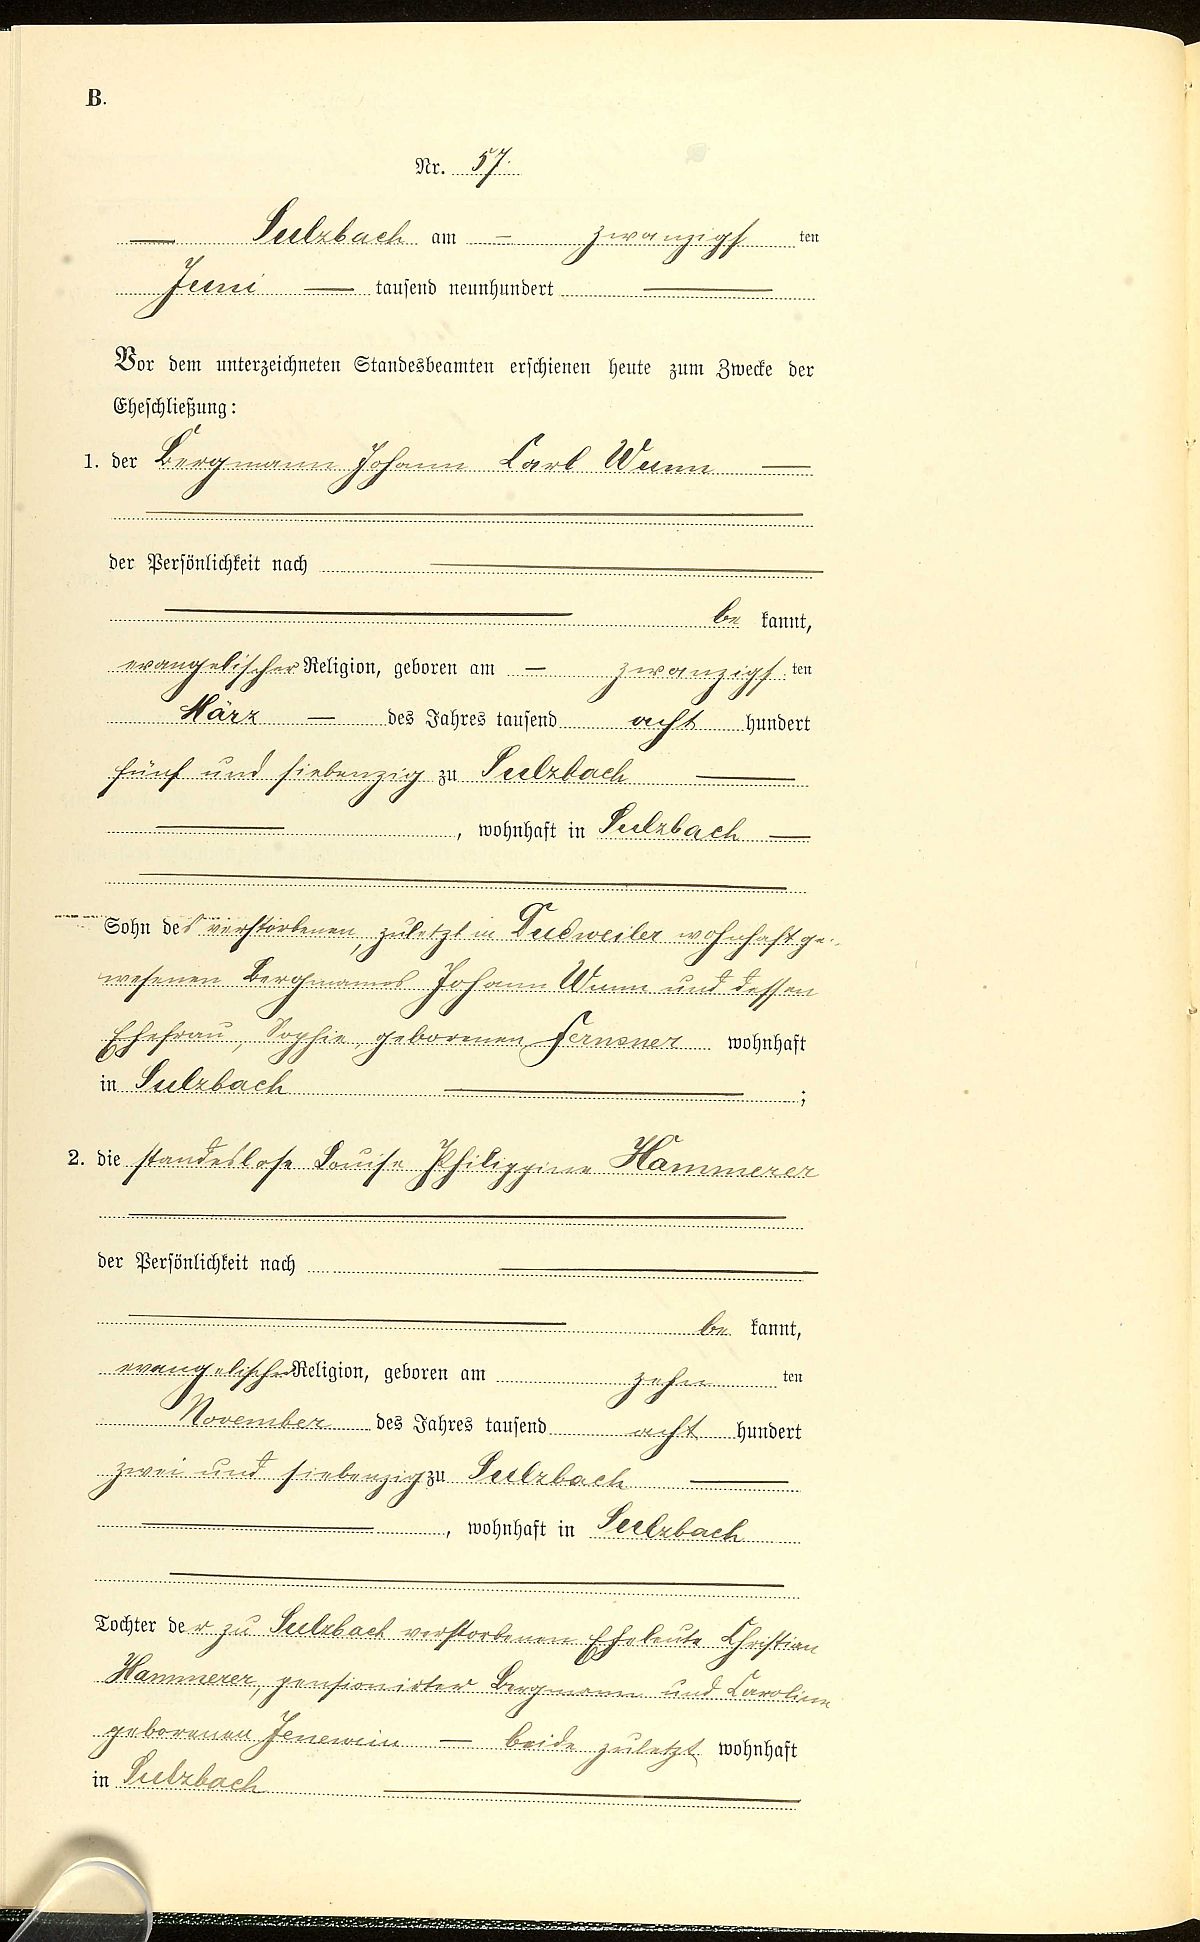 B.
Nr. 57.
Sulzbach am zwanzigsten
Juni tausend neunhundert
Vor dem unterzeichneten Standesbeamten erschienen heute zum Zwecke der
Eheschließung:
1. der Bergmann Johann Carl Wunn
der Persönlichkeit nach
be kannt,
evangelischer Religion, geboren am zwanzigsten
März des Jahres tausend acht hundert
fünf und siebenzig zu Sulzbach
, wohnhaft in Sulzbach
Sohn des verstorbenen, zuletzt in Dudweiler wohnhaft ge-
wesenen Bergmanns Johann Wunn und dessen
Ehefrau, Sophie, geborenen wohnhaft
in Sulzbach ;
2. die standeslose Louise Philippine Hammerer
der Persönlichkeit nach
be kannt,
evangelischer Religion, geboren am zehn ten
November des Jahres tausend acht hundert
zwei und siebenzig zu Sulzbach
, wohnhaft in Sulzbach
Tochter der zu Sulzbach verstorbenen Eheleute Christian
Hammerer, pensionirter Bergmann und Caroline
geborenen Jenewein beide zuletzt wohnhaft
in Sulzbach